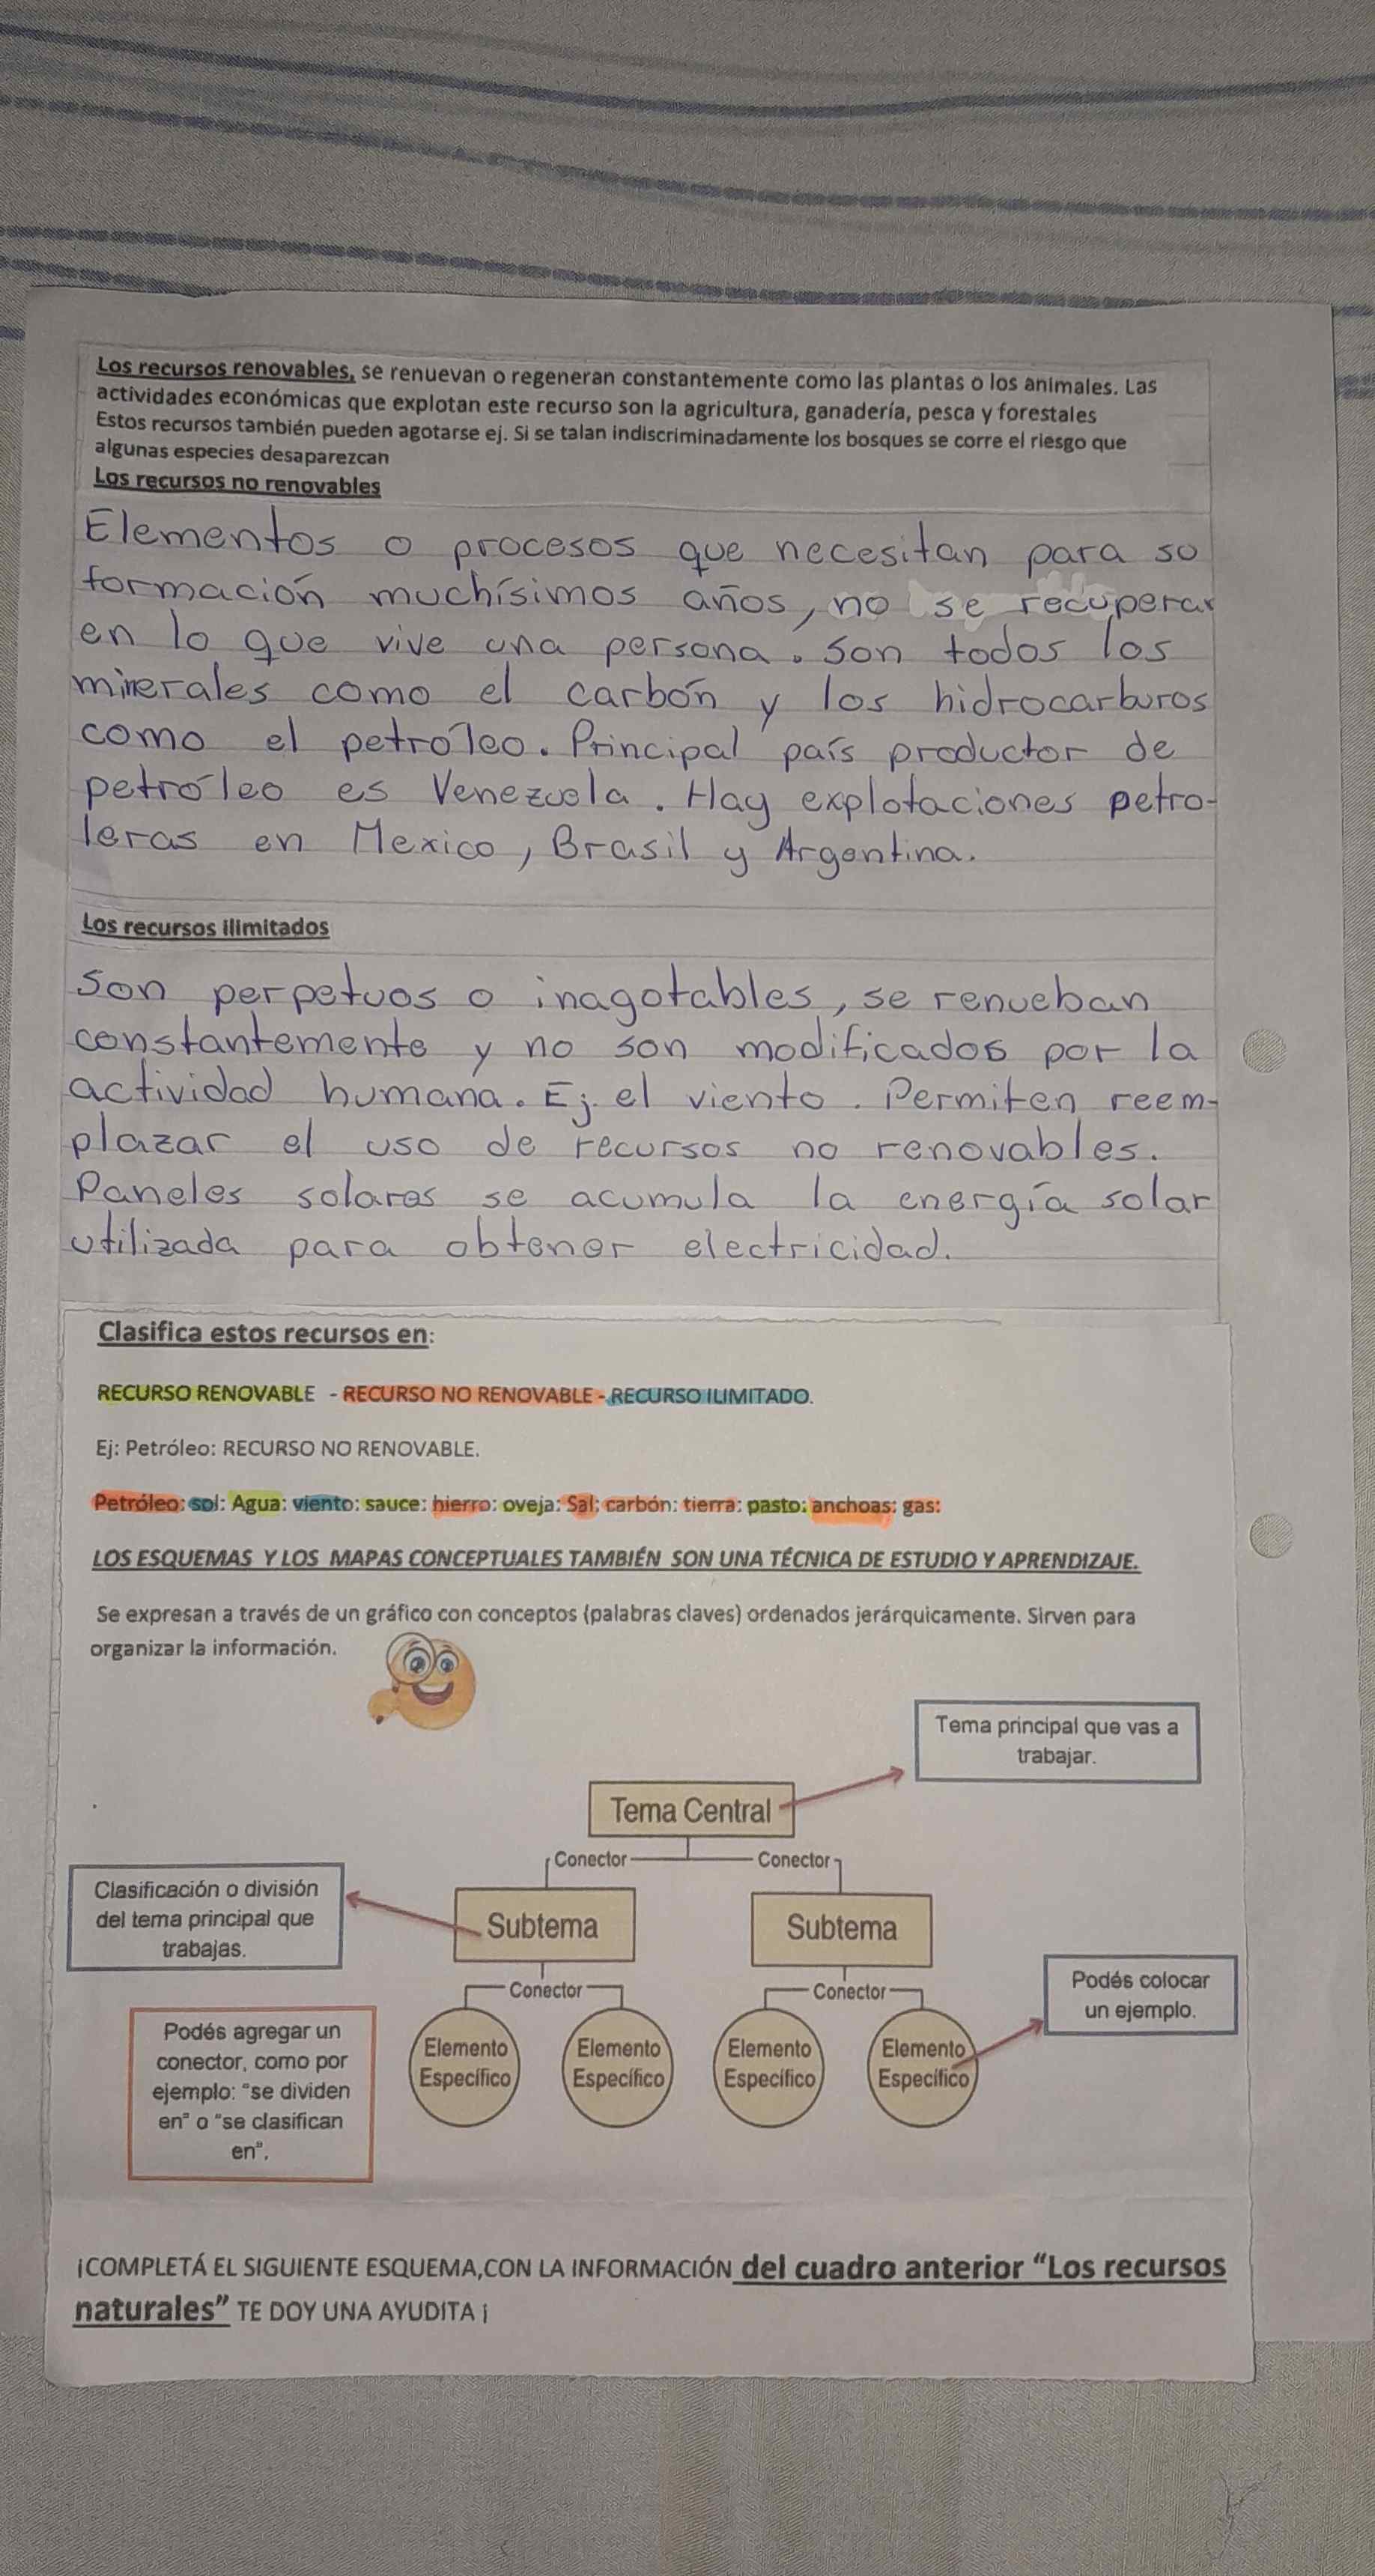 Los recursos renovables, se renuevan o regeneran constantemente como las plantas o los animales. Las
actividades económicas que explotan este recurso son la agricultura, ganadería, pesca y forestales
Estos recursos también pueden agotarse ej. Si se talan indiscriminadamente los bosques se corre el riesgo que
algunas especies desaparezcan
Los recursos no renovables
Elementos o procesos que necesitan para su
formación muchísimos años, no se recuperar
en lo que vive una persona. Son todos los
minerales como el carbón y los hidrocarburos
como el petróleo. Principal país productor de
petróleo es Venezuela. Hay explotaciones petro-
leras en Mexico, Brasil y Argentina.
Los recursos ilimitados
Son perpetuos o inagotables, se renueban
constantemente y no son modificados por la
actividad humana. Ej. el viento. Permiten reem-
plazar el uso de recursos no renovables.
Paneles solares se acumula la energía solar
utilizada para obtener electricidad.
Clasifica estos recursos en:
RECURSO RENOVABLE - RECURSO NO RENOVABLE - RECURSO ILIMITADO.
Ej: Petróleo: RECURSO NO RENOVABLE.
Petróleo: sol: Agua: viento: sauce: hierro: oveja: Sal: carbón: tierra: pasto: anchoas: gas:
LOS ESQUEMAS Y LOS MAPAS CONCEPTUALES TAMBIÉN SON UNA TÉCNICA DE ESTUDIO Y APRENDIZAJE.
Se expresan a través de un gráfico con conceptos (palabras claves) ordenados jerárquicamente. Sirven para
organizar la información.
Tema principal que vas a
trabajar.
Tema Central
Conector
Conector
Clasificación o división
del tema principal que
trabajas.
Subtema
Subtema
Conector
Conector
Podés colocar
un ejemplo.
Podés agregar un
conector, como por
ejemplo: "se dividen
en" o "se clasifican
en".
Elemento
Específico
Elemento
Específico
Elemento
Específico
Elemento
Específico
¡COMPLETÁ EL SIGUIENTE ESQUEMA,CON LA INFORMACIÓN del cuadro anterior "Los recursos
naturales" TE DOY UNA AYUDITA ¡